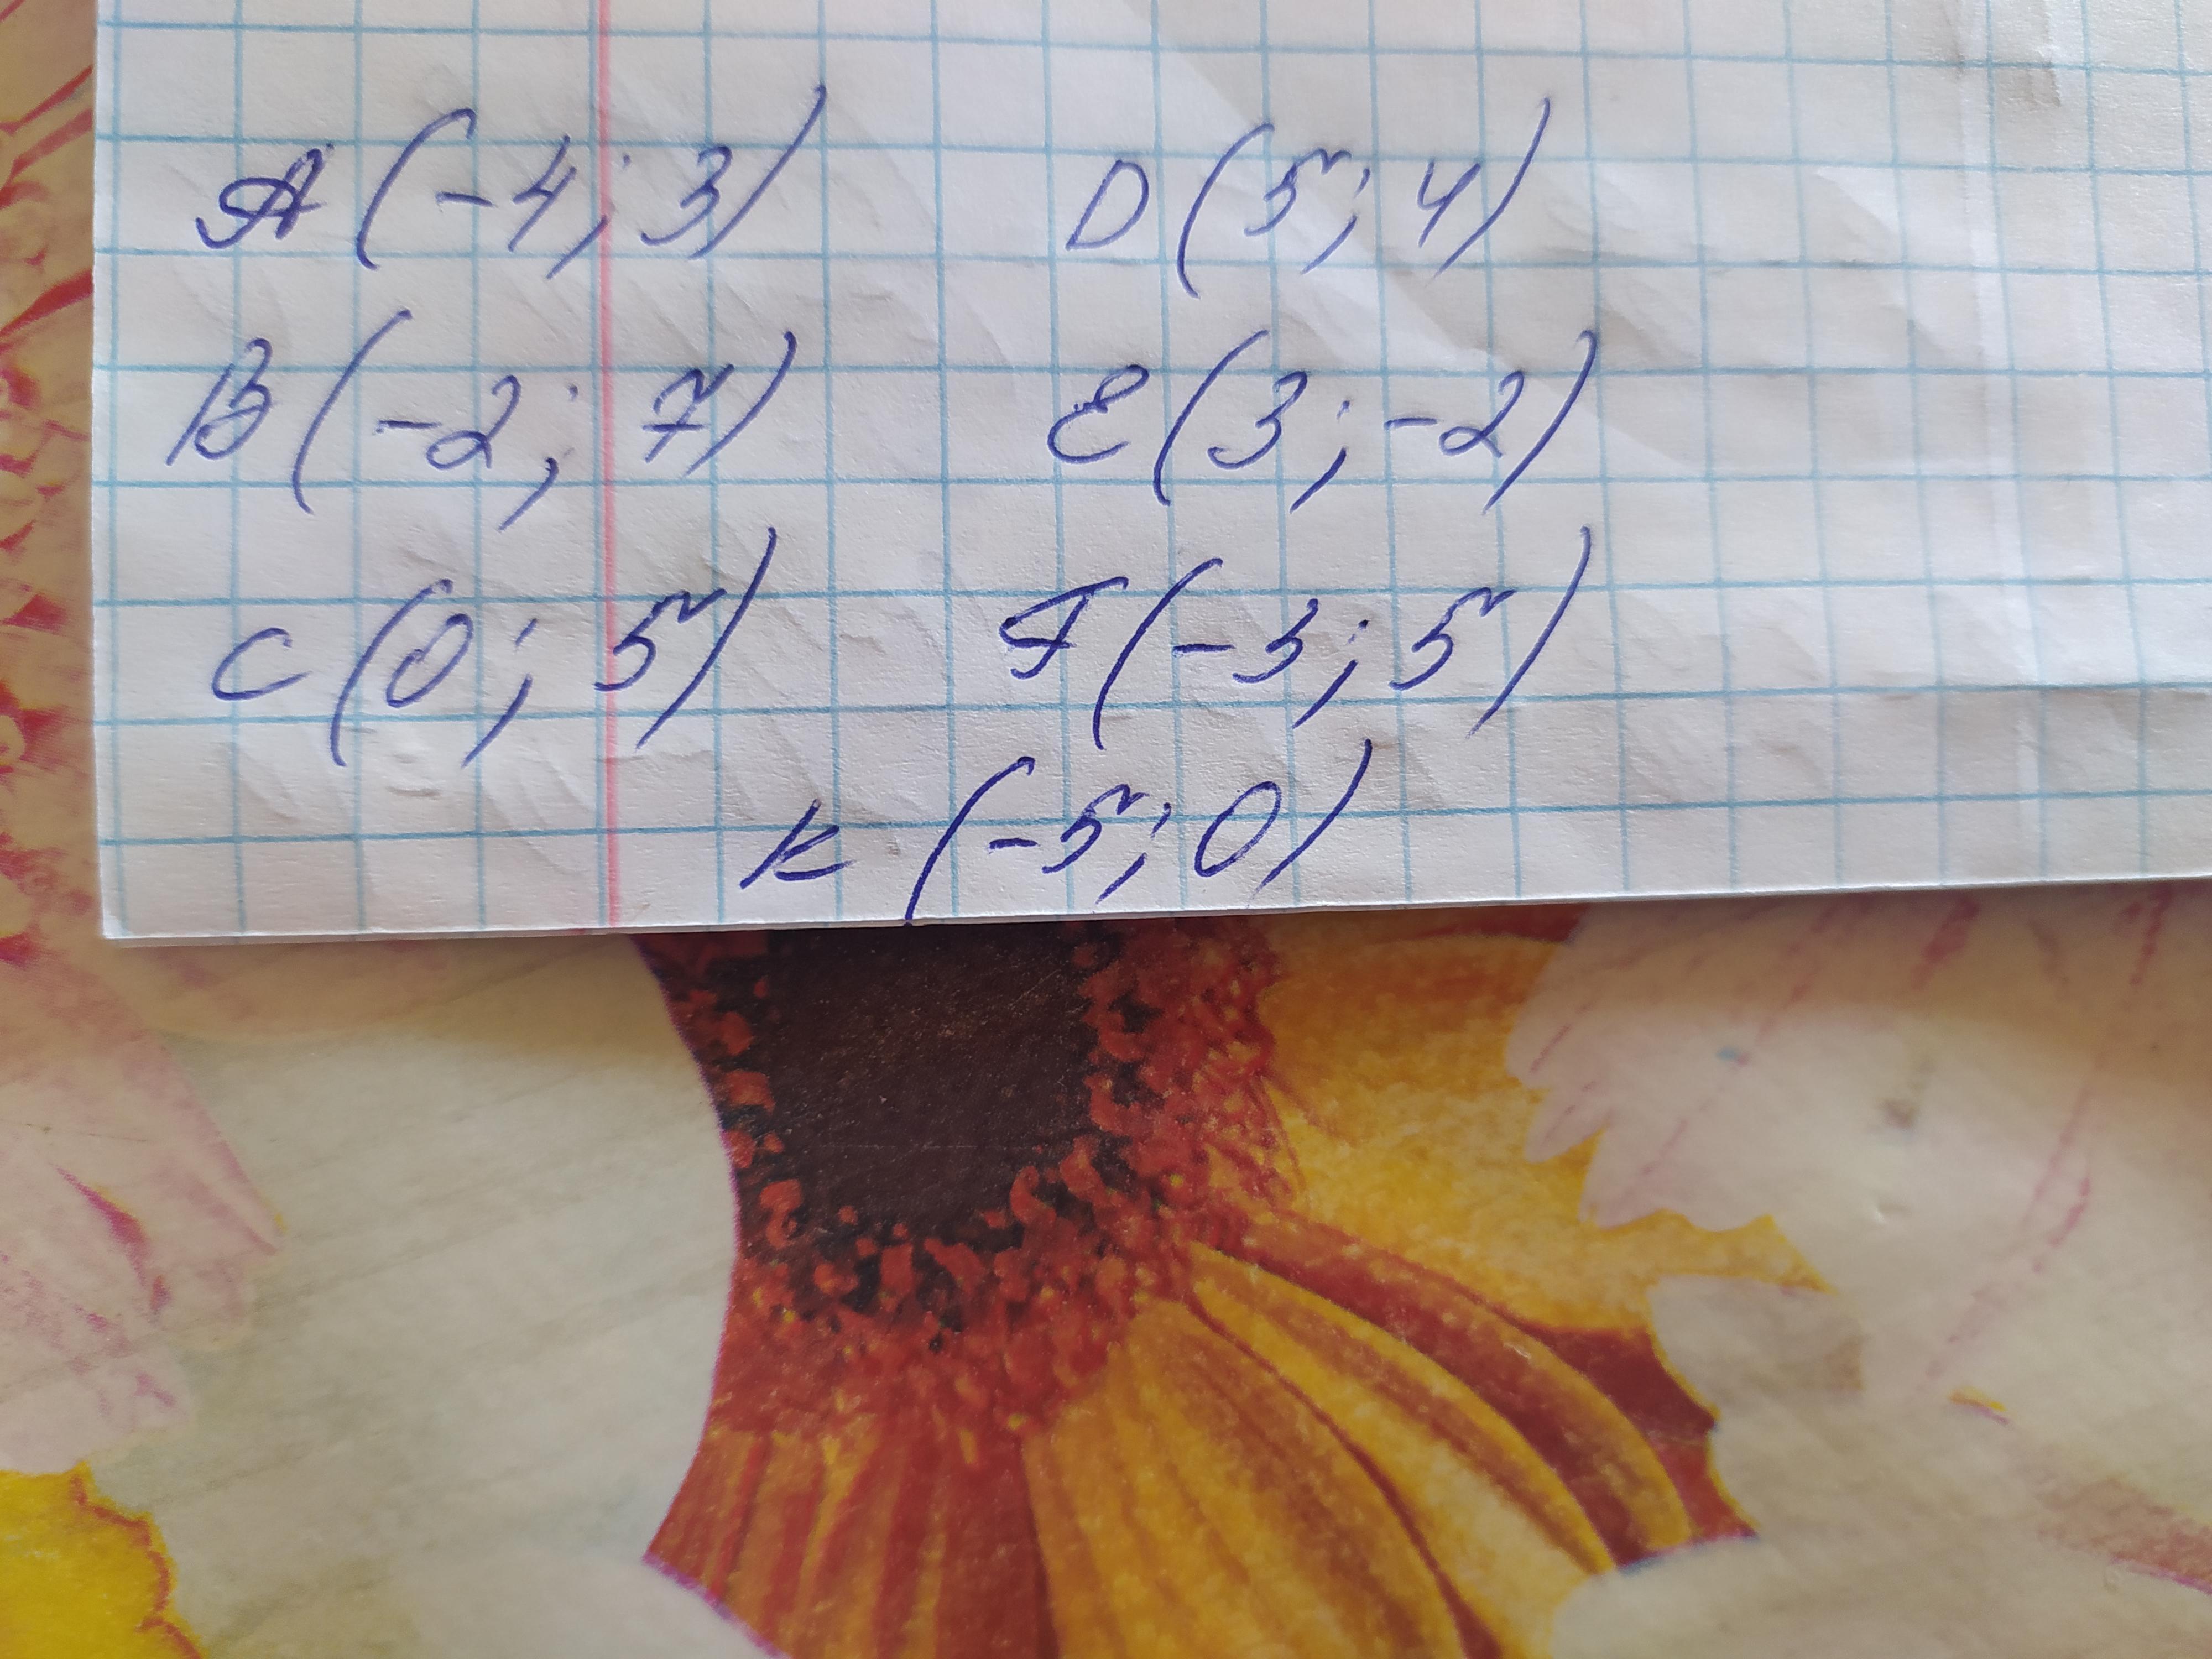 A (-4; 3) D (5; 4)
B (-2; 7) E (3; -2)
C (0; 5) F (-3; 5)
K (-5; 0)